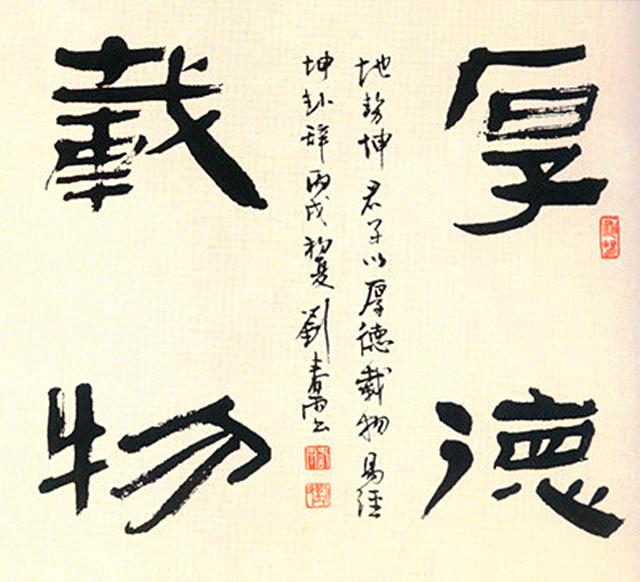 厚德
載物
地勢坤君子以厚德載物易經
坤卦辞丙戌初夏劉春雨书